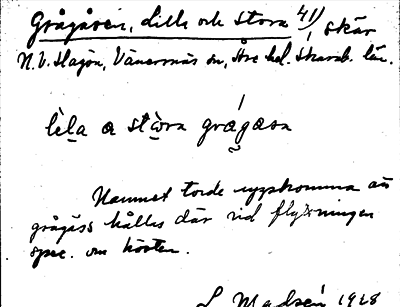 Grågåsen, Lilla och Stora 41/, skär
N.V. Slagön, Vänersnäs sn, Åse hd. Skarab. län.
lèla a stòra grágåsa
Namnet torde uppkomma av
grågäss hålles där vid flyttningen
spec. om hösten.
L Madsén 1928